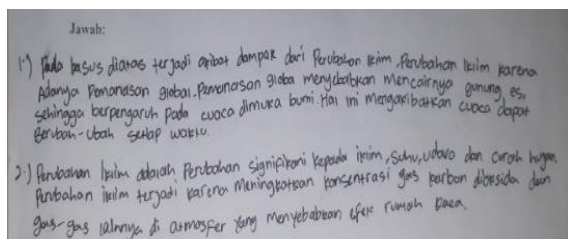 Jawab:
1.) Pada kasus diatas terjadi akibat dampak dari Perubahan Iklim. Perubahan Iklim karena
Adanya Pemanasan global. Pemanasan globa menyebabkan Mencairnya gunung es,
sehingga berpengaruh Pada cuaca dimuka bumi. Hal ini mengakibatkan cuaca dapat
Berubah-ubah setiap waktu.
2.) Perubahan Iklim adalah Perubahan signifikani kepada iklim, suhu, udara dan curah hujan.
Perubahan iklim terjadi karena Meningkatkan konsentrasi gas karbon dioksida dan
gas-gas lainnya di atmosfer yang menyebabkan efek rumah kaca.